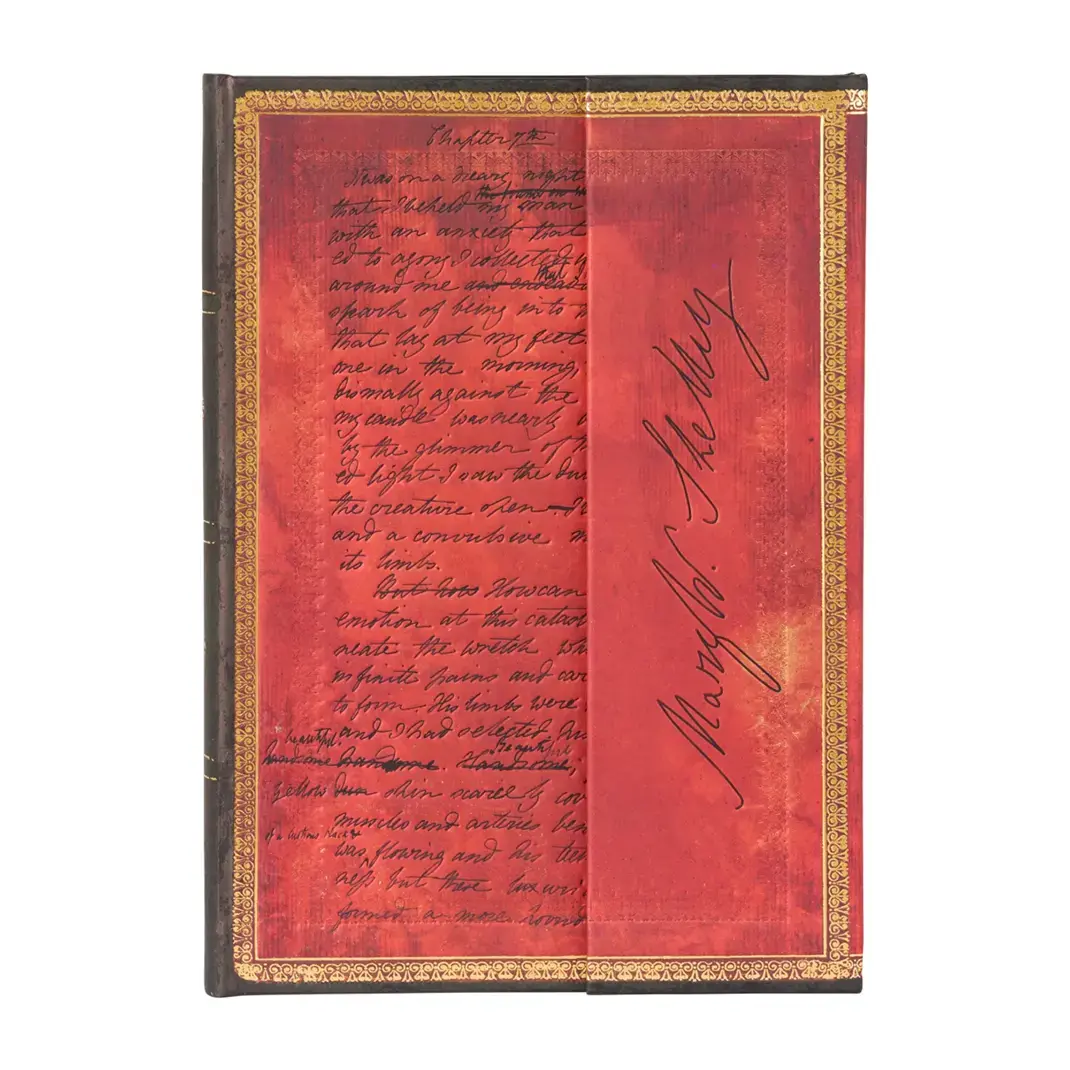 Chapter 7th
It was on a dreary night
the frame on
that I beheld my man
with an anxiety that
ed to agony I collected
that
around me and endeavo
spark of being into
that lay at my feet.
one in the morning,
dismally against the
my candle was nearly
by the glimmer of
ed light I saw the du
the creature open — I
and a convulsive m
its limbs.
But how How can
emotion at this catast
neate the wretch wh
infinite pains and car
to form. His limbs were
and I had selected his
beautiful.
beautiful
handsome handsome. Handsome,
yellow dun skin scarcely cov
muscles and arteries ben
of a lustrous black &
was flowing and his tee
ness but these luxuri
formed a more horrid
Mary W. Shelley